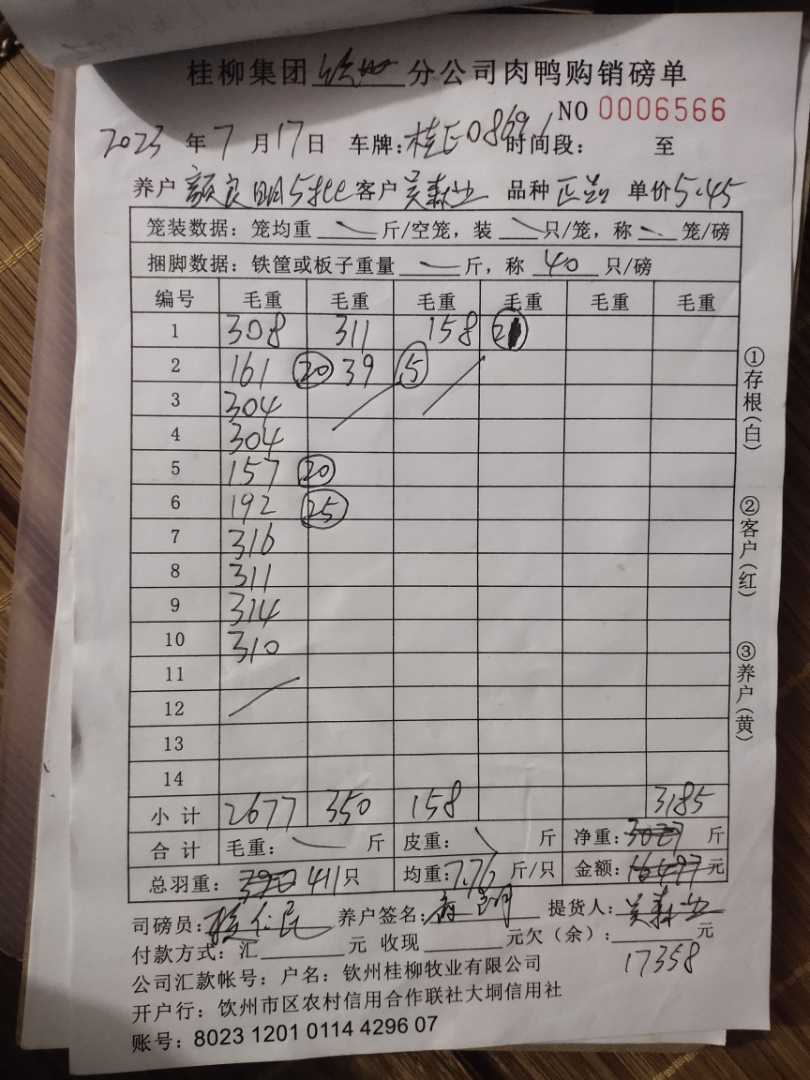 桂柳集团 分公司肉鸭购销磅单
NO 0006566
2023 年 7 月 17 日 车牌: 时间段: 至
养户 客户 吴森业 品种 单价 5.45
笼装数据: 笼均重 斤/空笼, 装 只/笼, 称 笼/磅
捆脚数据: 铁筐或板子重量 斤, 称 40 只/磅
编号 毛重 毛重 毛重 毛重 毛重 毛重
1 308 311 158 21
2 161 20 39 5
3 304
4 304
5 157 20
6 192 25
7 316
8 311
9 314
10 310
11
12
13
14
小 计 2677 350 158 3185
合 计 毛重: 斤 皮重: 斤 净重: 3027 斤
总羽重: 390 411 只 均重: 7.76 斤/只 金额: 16497 元
司磅员: 养户签名: 提货人: 吴森业
付款方式: 汇 元 收现 元欠(余): 元
17358
公司汇款帐号: 户名: 钦州桂柳牧业有限公司
开户行: 饮州市区农村信用合作联社大垌信用社
账号: 8023 1201 0114 4296 07
①存根(白)
②客户(红)
③养户(黄)